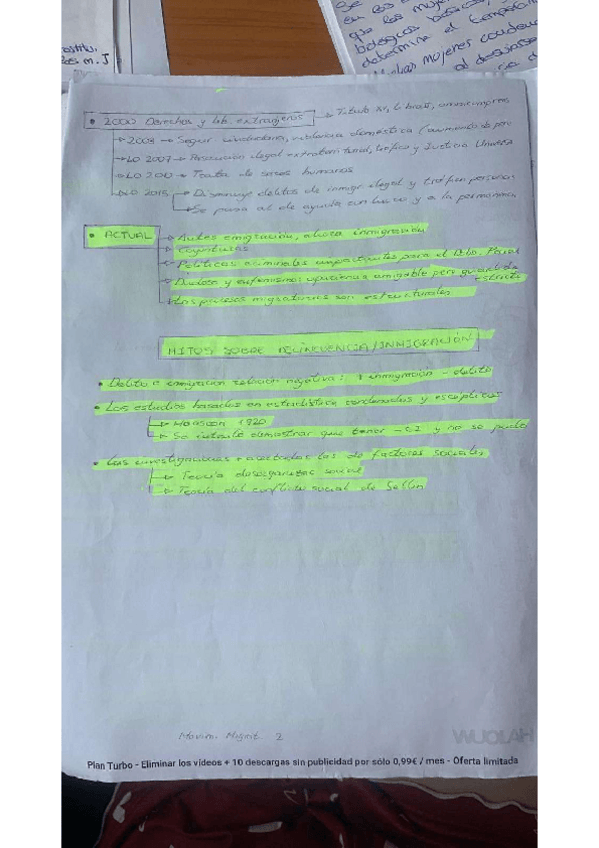 Se
en los
que las mujer
biológicos
determina el
Muchas mujeres
es m. J
• 2000 Derechos y lib. extranjeros → Título XV,
→ 2003 → Segur. ciudadana, violencia doméstica
→ LO 2007 → Persecución ilegal extraterritorial, tráfico y Justicia Univers
→ LO 2010 → Trata de seres humanos
→ LO 2015 → Disminuye delitos de inmigr. ilegal y trafican personas
→ Se pasa al de ayuda sin lucro y a la permanencia
• ACTUAL → Antes emigración, ahora inmigración
→ Coyuntural
→ Políticas criminales importantes para el Dho. Penal
→ y eufemismos apariencia amigable pero
→ Los procesos migratorios son estructurales
MITOS SOBRE DELINCUENCIA/INMIGRACIÓN
• Delito e inmigración relación negativa: + inmigración - delito
• Los estudios basados en estadística condenados y escépticos
→ 1920
→ Se intentó demostrar que tener - CI y no se pudo
• Las investigaciones + acertadas las de factores sociales
→ Teoría desorganizac social
→ Teoría del conflicto social de Sellin
Movim. Migrat. 2
WUOLAH
Plan Turbo - Eliminar los vídeos + 10 descargas sin publicidad por sólo 0,99€ / mes - Oferta limitada